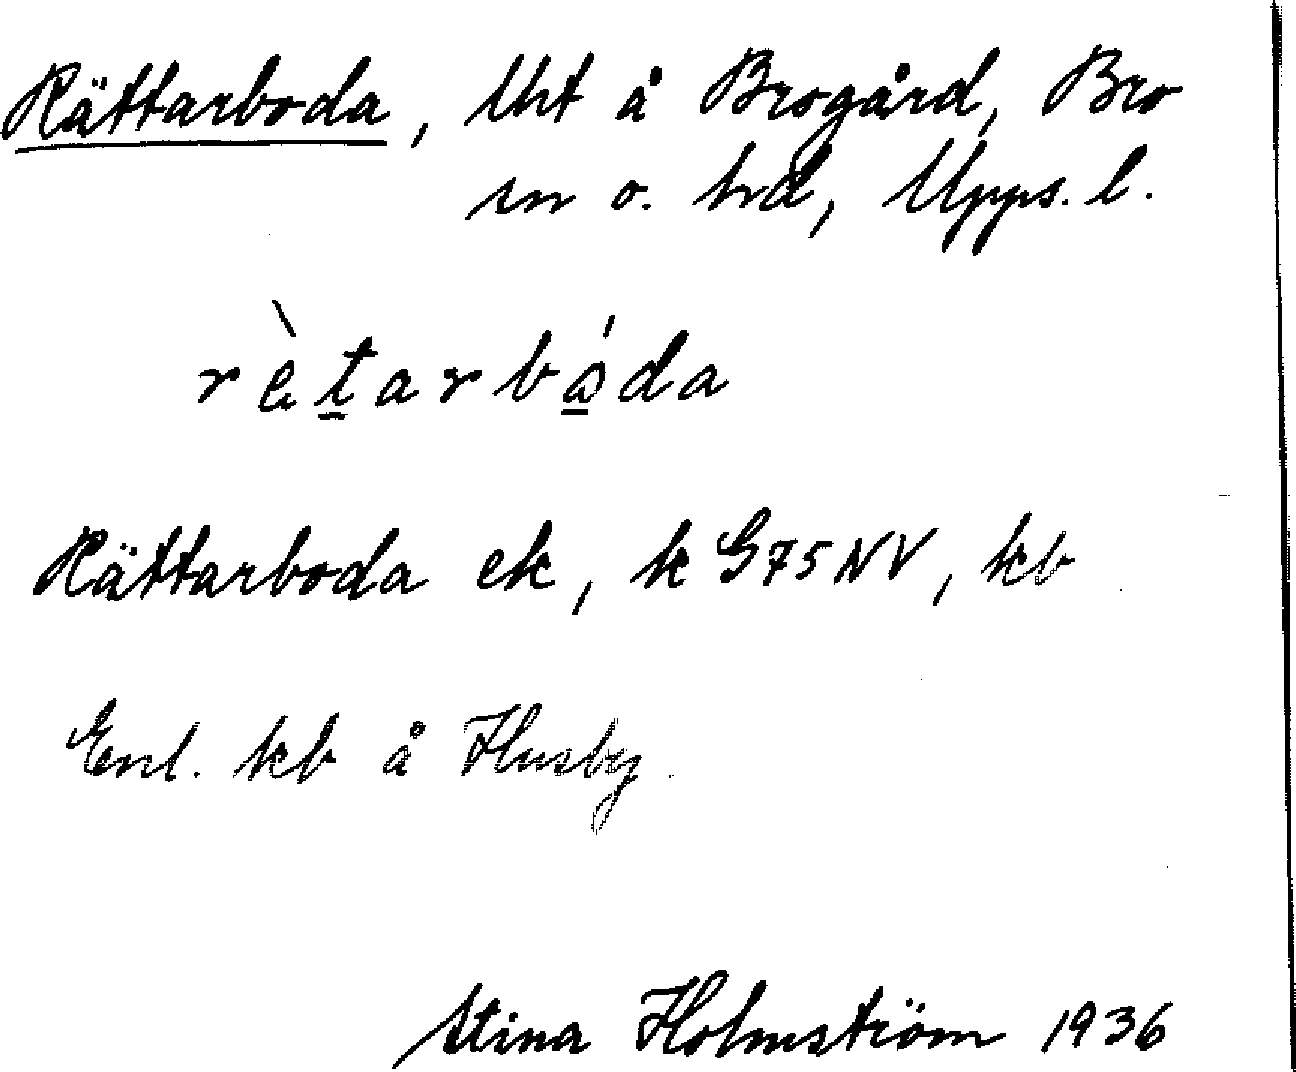 Rättarboda, lht å Brogård, Bro
sn o. hd, Upps. l.
rètarbóda
Rättarboda ek, k G75NV, kb
Enl. kb å Husby.
Stina Holmström 1936